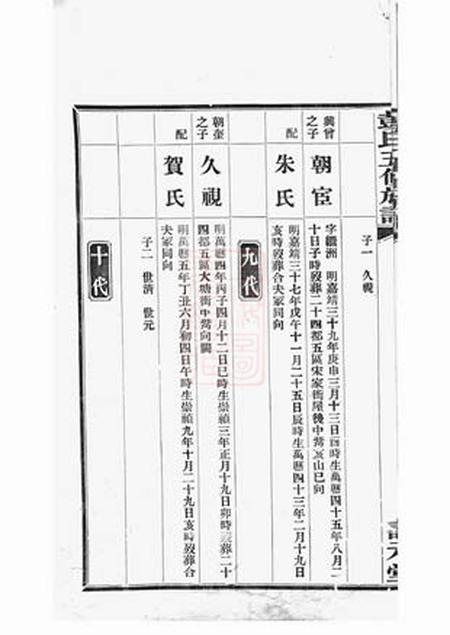 彭氏五修族譜
子一 久視
冀曾之子
朝宦
字繼洲 明嘉靖三十九年庚申三月十三日酉時生萬曆四十五年八月二
十日子時歿葬二十四都五區宋家衝屋後中嵩亥山巳向
配
朱氏
明嘉靖三十七年戊午十一月二十五日辰時生萬曆四十三年二月十九日
亥時歿葬合夫冢同向
九代
朝奎之子
久視
明萬曆四年丙子四月十二日巳時生崇禎三年正月十九日卯時歿葬二十
四都五區大塘衝中嵩向闕
配
賀氏
明萬曆五年丁丑六月初四日午時生崇禎九年十月二十九日亥時歿葬合
夫冢同向
子二 世清 世元
十代